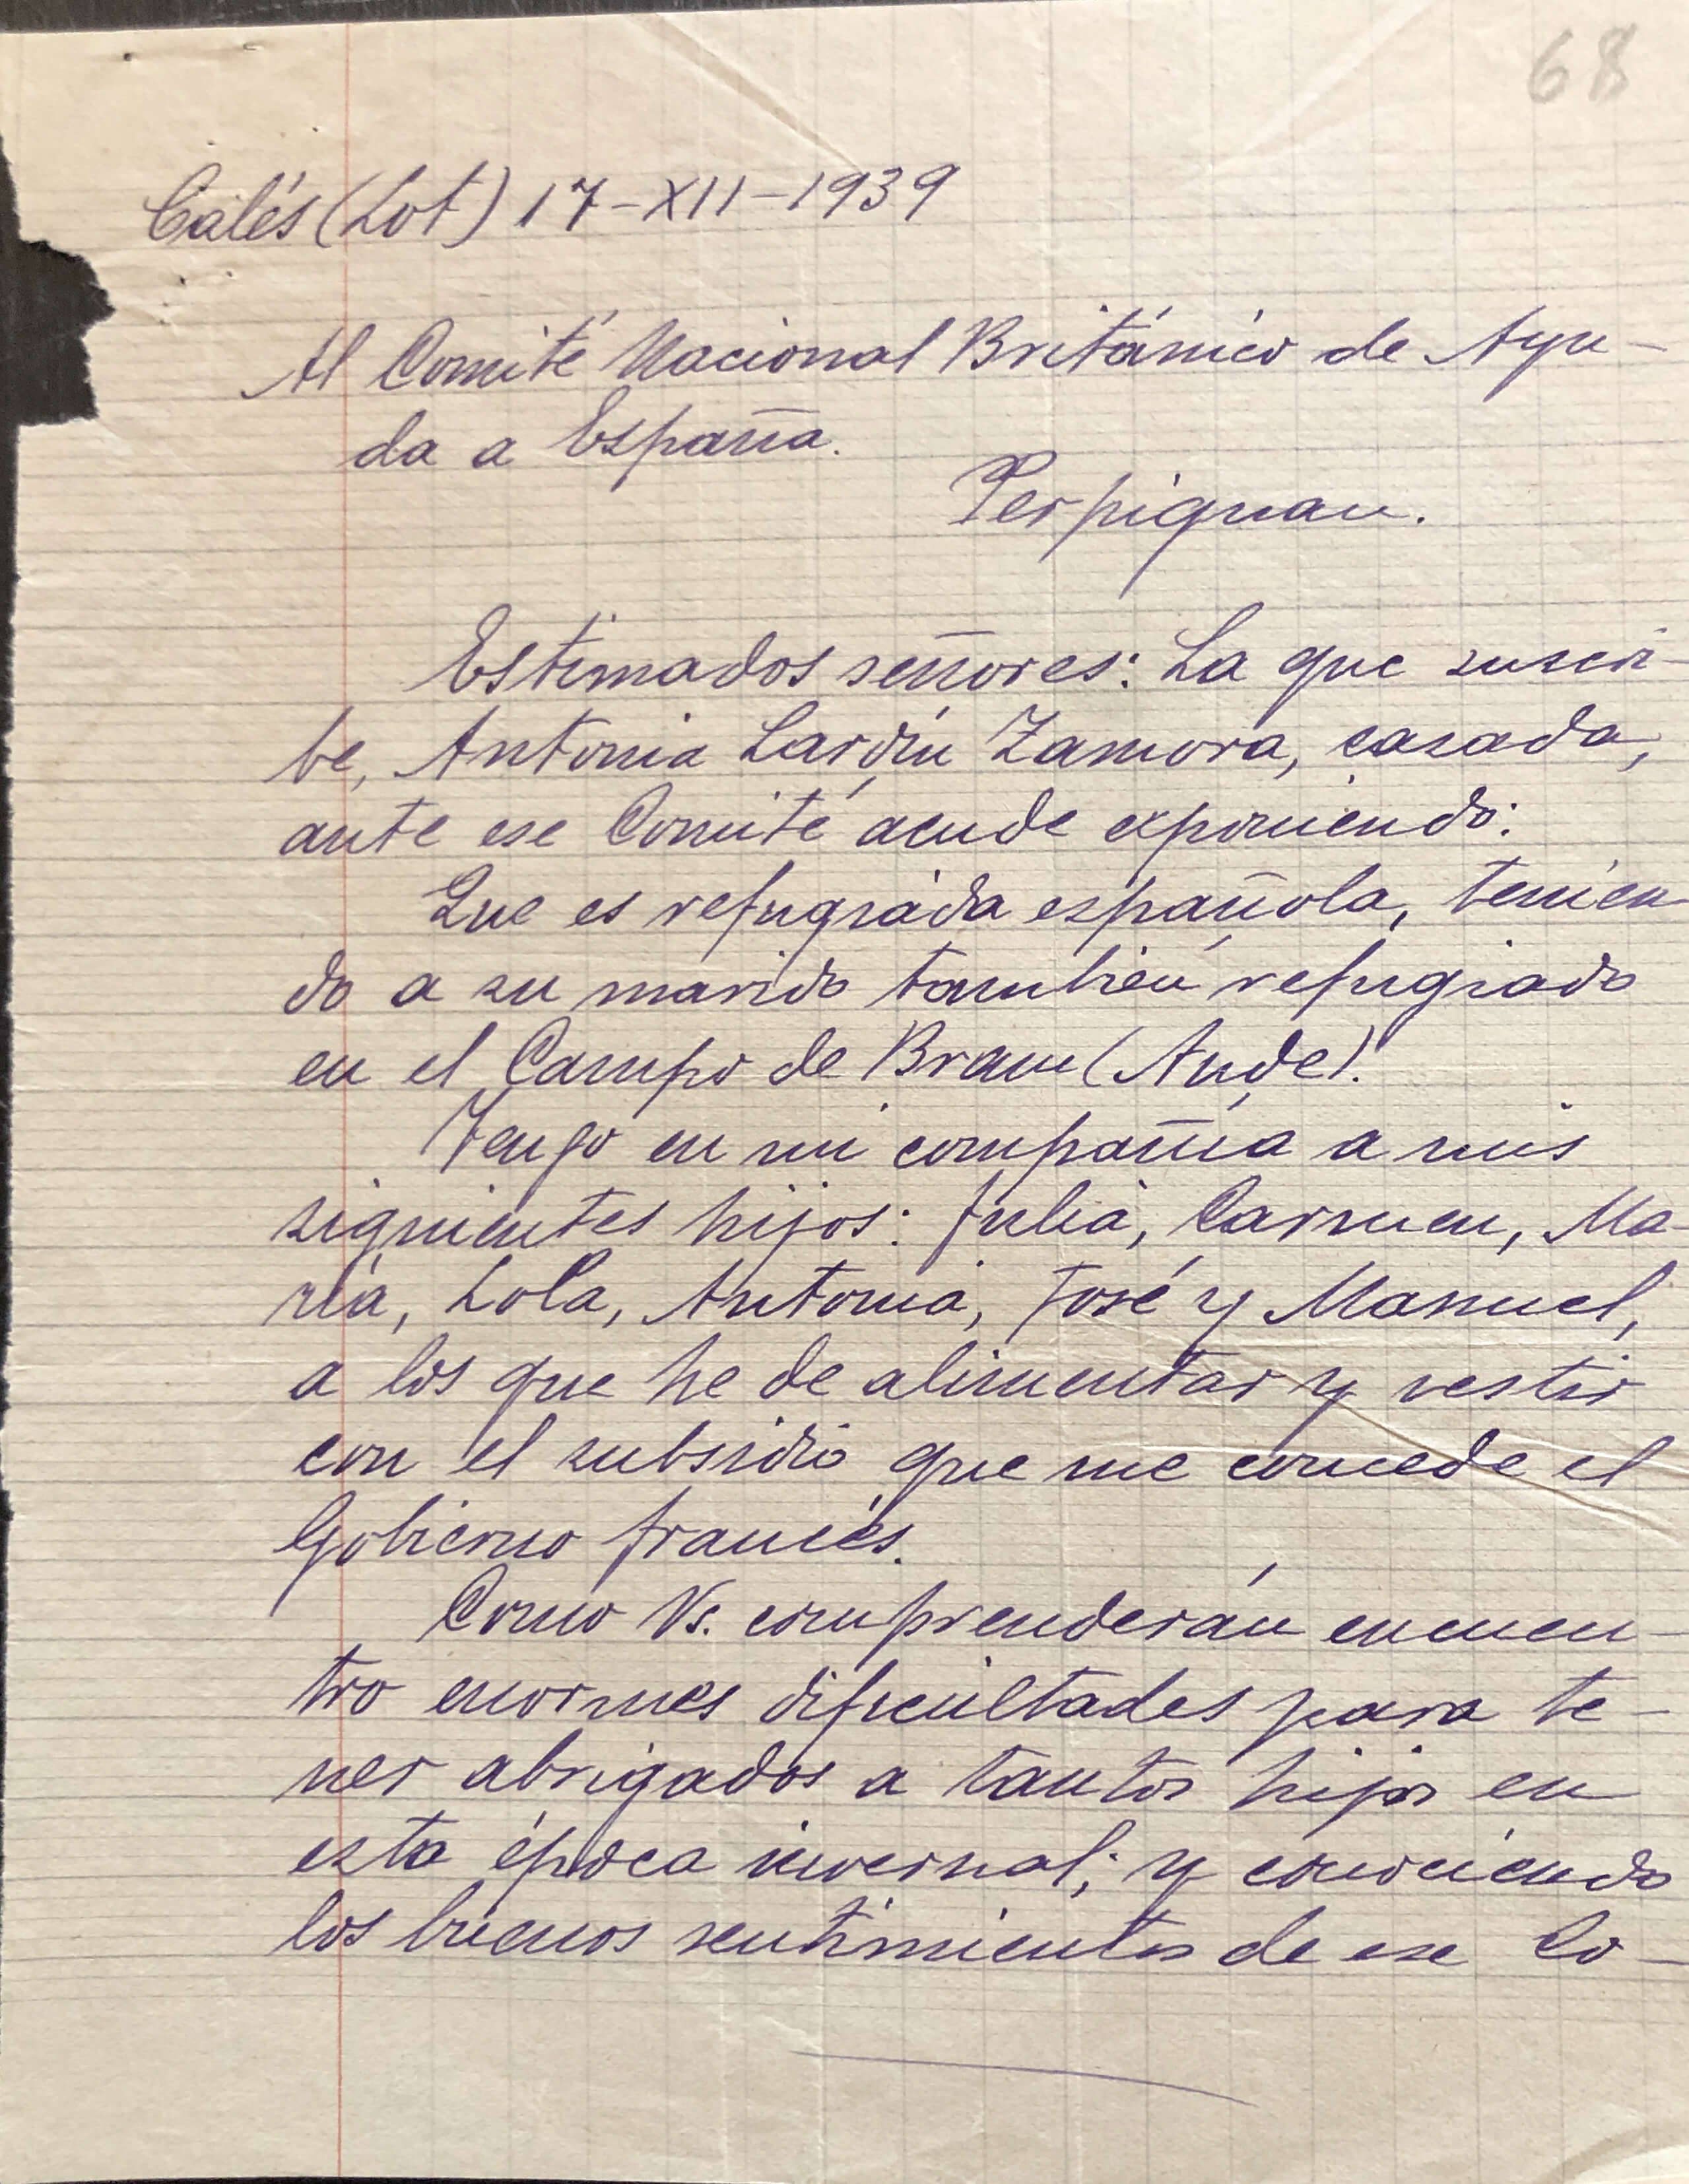 68
Calés (Lot) 17-XII-1939
Al Comité Nacional Británico de Ayu-
da a España.
Perpignan.
Estimados señores: La que suscri-
be, Antonia Lardín Zamora, casada,
ante ese Comité acude exponiendo:
Que es refugiada española, tenien-
do a su marido también refugiado
en el Campo de Bram (Aude).
Tengo en mi compañía a mis
siguientes hijos: Julia, Carmen, Ma-
ría, Lola, Antonia, José y Manuel,
a los que he de alimentar y vestir
con el subsidio que me concede el
Gobierno francés.
Como Vs. comprenderán encuen-
tro enormes dificultades para te-
ner abrigados a tantos hijos en
esta época invernal; y conociendo
los buenos sentimientos de ese Co-